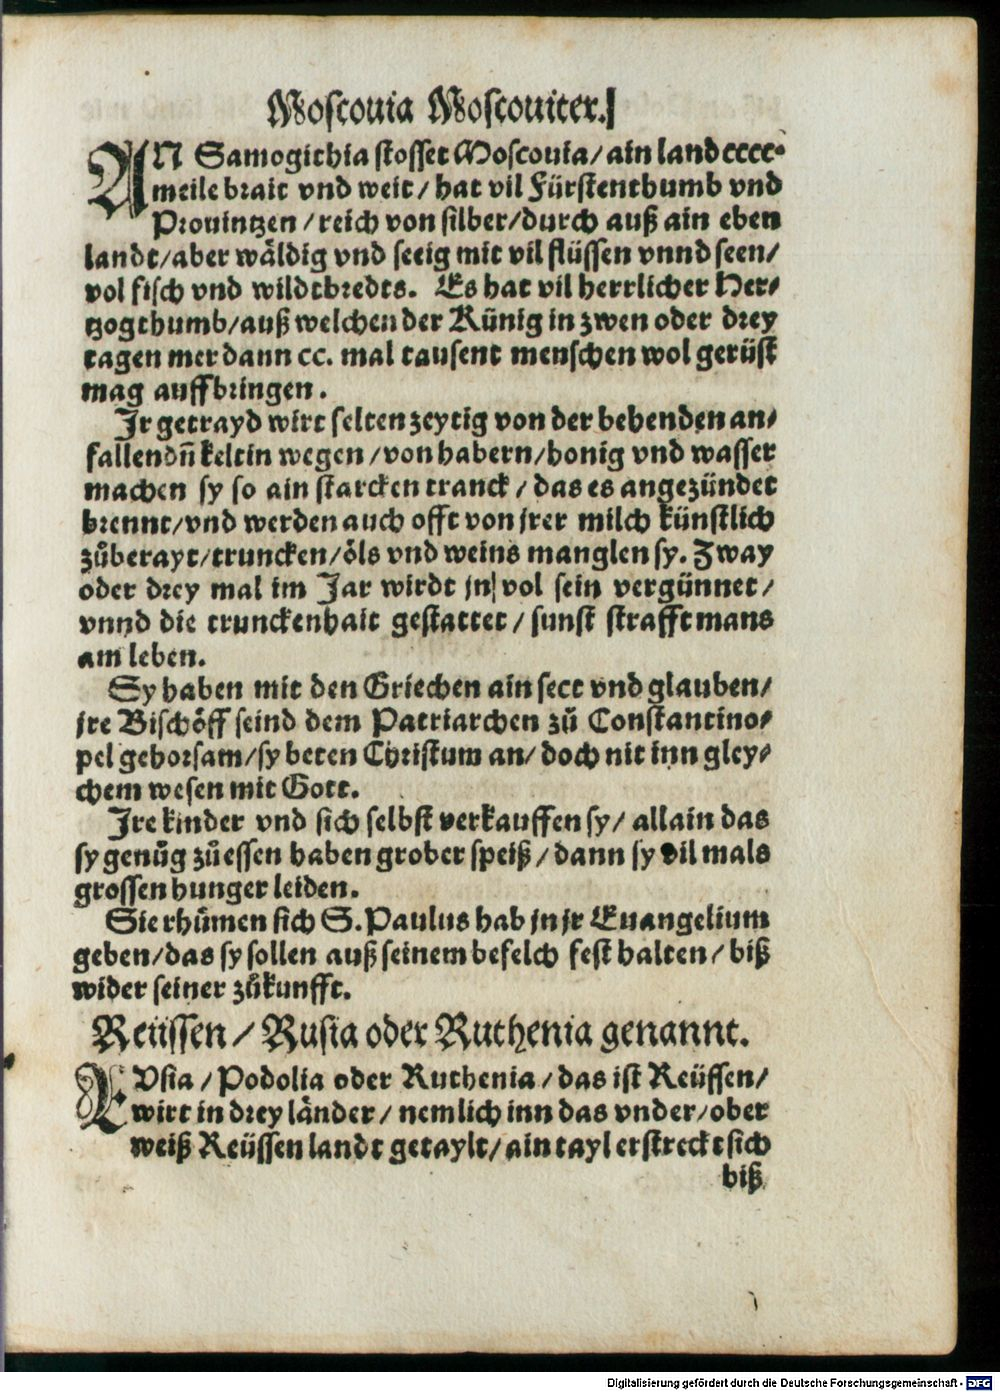 Moscouia Moscouiter.
AN Samogithia stosset Moscouia/ ain land cccc⸗
meile brait vnd weit/ hat vil Fürstenthumb vnd
Prouintzen/ reich von silber/ durch auß ain eben
landt/ aber wäldig vnd seeig mit vil flüssen vnnd seen/
vol fisch vnd wildtbredts. Es hat vil herrlicher Her⸗
tzogthumb/ auß welchen der Künig in zwen oder drey
tagen mer dann cc. mal tausent menschen wol gerüst
mag auffbringen.
Jr getrayd wirt selten zeytig von der behenden an⸗
fallendñ keltin wegen/ von habern/ honig vnd wasser
machen sy so ain starcken tranck/ das es angezündet
brennt/ vnd werden auch offt von jrer milch künstlich
zůberayt/ truncken/ öls vnd weins manglen sy. Zway
oder drey mal im Jar wirdt jn vol sein vergünnet/
vnnd die trunckenhait gestattet/ sunst strafft mans
am leben.
Sy haben mit den Griechen ain sect vnd glauben/
jre Bischöff seind dem Patriarchen zů Constantino⸗
pel gehorsam/ sy beten Christum an/ doch nit inn gley⸗
chem wesen mit Gott.
Jre kinder vnd sich selbst verkauffen sy/ allain das
sy genůg zůessen haben grober speiß/ dann sy vil mals
grossen hunger leiden.
Sie rhůmen sich S. Paulus hab jn jr Euangelium
geben/ das sy sollen auß seinem befelch fest halten/ biß
wider seiner zůkunfft.
Reüssen/ Rusia oder Ruthenia genannt.
RVsia/ Podolia oder Ruthenia/ das ist Reüssen/
wirt in drey länder/ nemlich inn das vnder/ ober
weiß Reüssen landt getaylt/ ain tayl erstreckt sich
biß
Digitalisierung gefördert durch die Deutsche Forschungsgemeinschaft - DFG